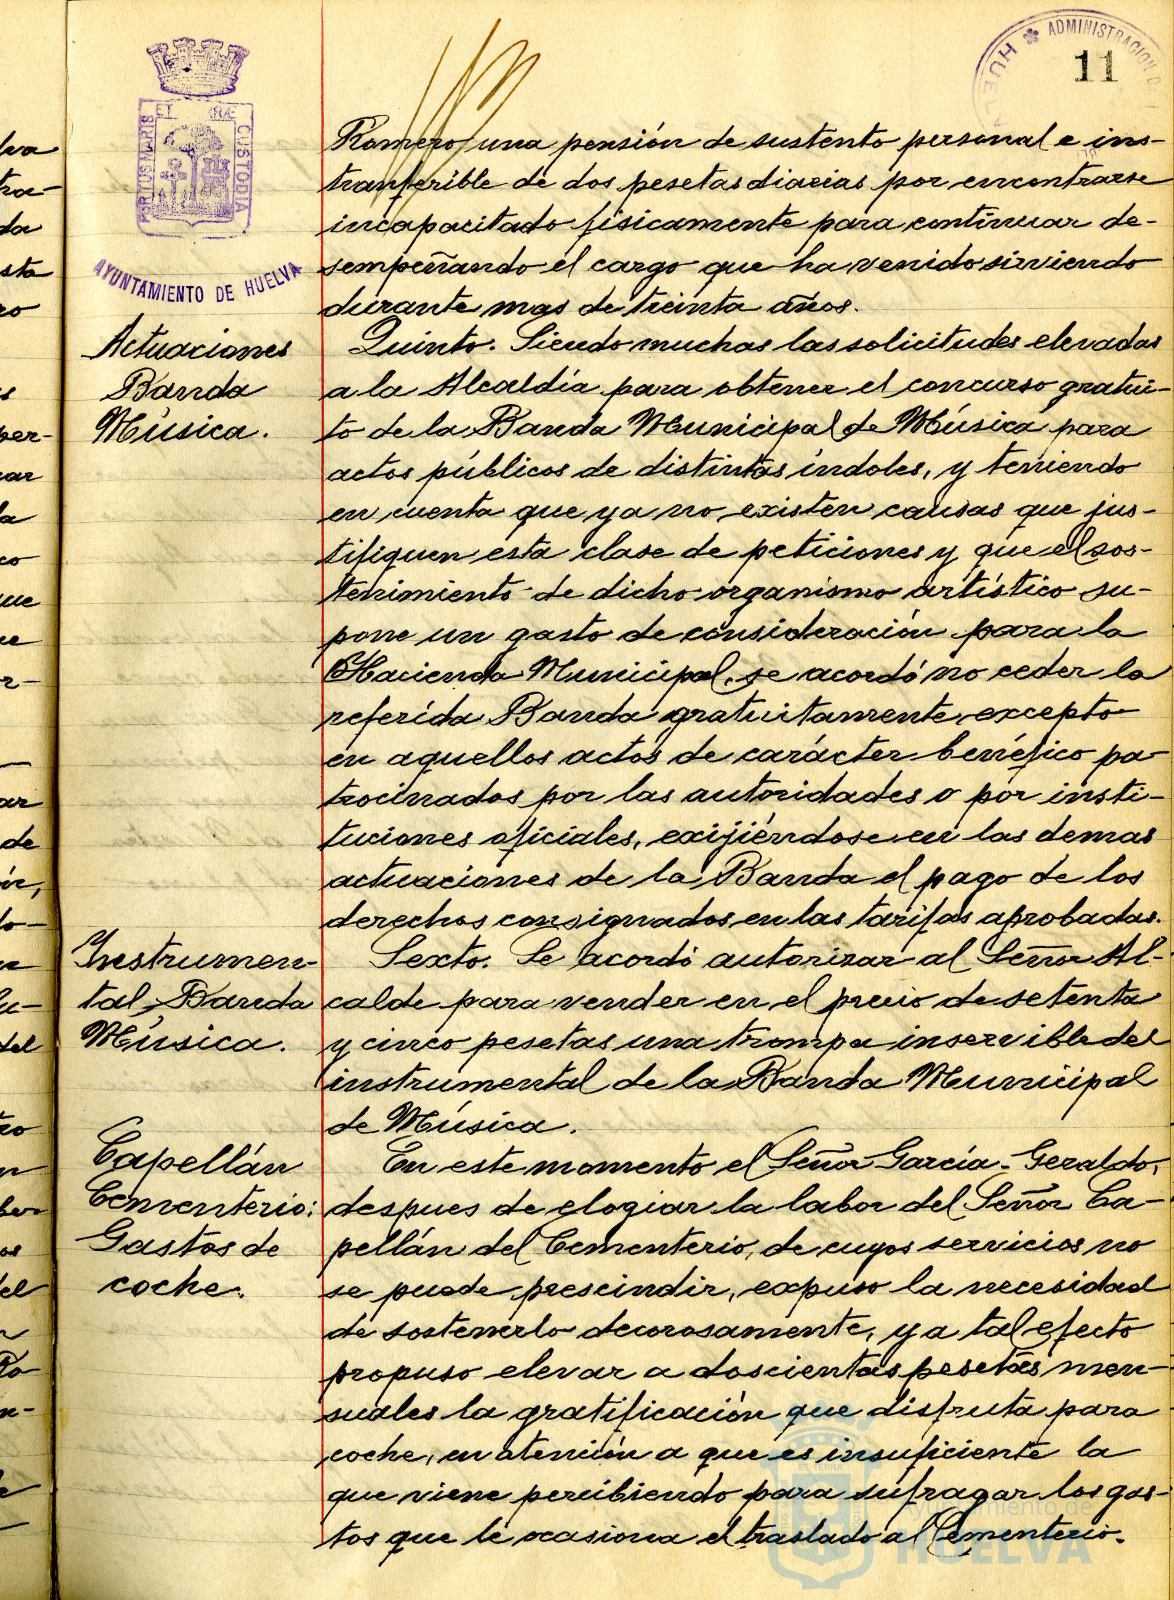 ADMINISTRACION D
HUEL
11
PORTUS MARIS ET TERRE CUSTODIA
AYUNTAMIENTO DE HUELVA
Romero una pensión de sustento personal e ins-
tranferible de dos pesetas diarias por encontrarse
incapacitado físicamente para continuar de-
sempeñando el cargo que ha venido sirviendo
durante mas de treinta años.
Actuaciones
Banda
Música.
Quinto. Siendo muchas las solicitudes elevadas
a la Alcaldía para obtener el concurso gratui-
to de la Banda Municipal de Música para
actos públicos de distintas índoles, y teniendo
en cuenta que ya no existen causas que jus-
tifiquen esta clase de peticiones y que el sos-
tenimiento de dicho organismo artístico su-
pone un gasto de consideración para la
Hacienda Municipal, se acordó no ceder la
referida Banda gratuitamente, excepto
en aquellos actos de carácter benéfico pa-
trocinados por las autoridades o por insti-
tuciones oficiales, exijiéndose en las demas
actuaciones de la Banda el pago de los
derechos consignados en las tarifas aprobadas.
Instrumen-
tal Banda
Música.
Sexto. Se acordó autorizar al Señor Al-
calde para vender en el precio de setenta
y cinco pesetas una trompa inservible del
instrumental de la Banda Municipal
de Música.
Capellán
Cementerio:
Gastos de
coche.
En este momento el Señor García-Geraldo,
despues de elogiar la labor del Señor Ca-
pellán del Cementerio, de cuyos servicios no
se puede prescindir, expuso la necesidad
de sostenerlo decorosamente, y a tal efecto
propuso elevar a doscientas pesetas men-
suales la gratificación que disfruta para
coche, en atención a que es insuficiente la
que viene percibiendo para sufragar los gas-
tos que le ocasiona el traslado al Cementerio.
Ayuntamiento de
HUELVA